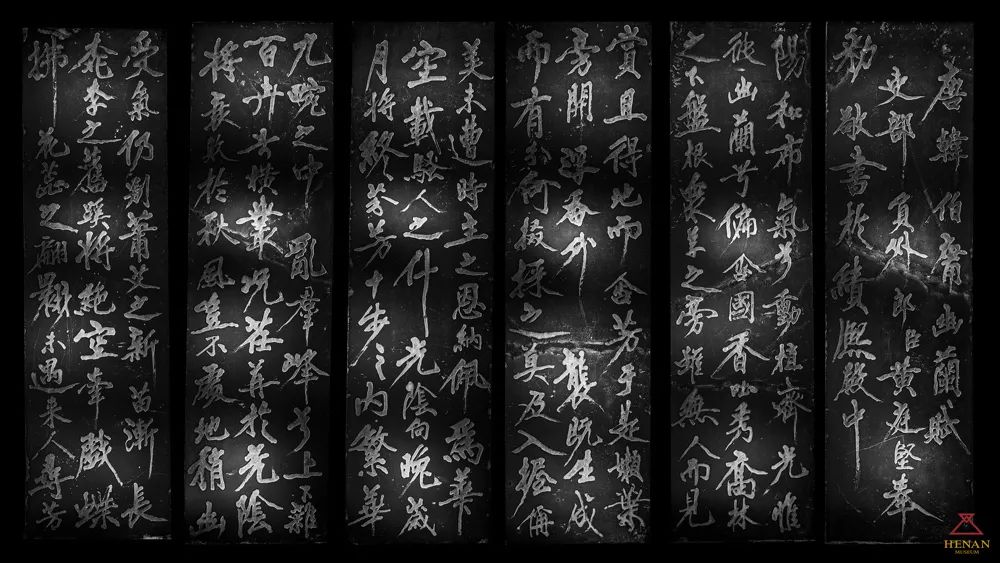 唐韓伯庸幽蘭賦
吏部員外郎臣黃庭堅奉
勅敬書於績熙殿中
陽和布氣兮動植齊光惟
彼幽蘭兮偏含國香吐秀喬林
之下盤根衆草之旁雖無人而見
賞且得地而含芳于是嫩葉
旁開浮香外襲既生成
而有分何掇採之莫及入握佩
美未遭時主之恩納佩為華
空載騷人之什光陰向晚歲
月將終芬芳十步之內繁華
九畹之中亂群峰兮上下雜
百卉兮橫叢況荏苒於光陰
將衰敗於秋風豈不處地稍幽
受氣仍別蕭艾之新苗漸長
桃李之舊蹊將絕空牽戲蝶
拂花蕊之翩翾未遇來人尋芳
HENAN
MUSEUM